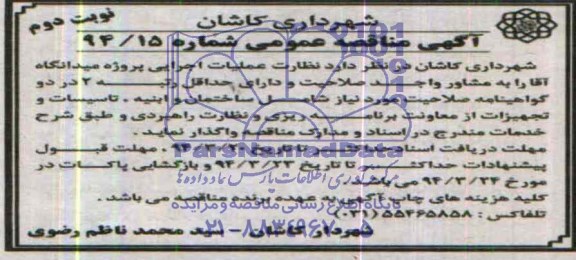 شهرداری کاشان
نوبت دوم
آگهی مناقصه عمومی شماره ۹۴/۱۵
شهرداری کاشان در نظر دارد نظارت عملیات اجرایی پروژه میدانگاه
آقا را به مشاور واجد صلاحیت و دارای حداقل رتبه ۲ در دو
گواهینامه صلاحیت مورد نیاز شامل ساختمان و ابنیه ، تاسیسات و
تجهیزات از معاونت برنامه ریزی و نظارت راهبردی و طبق شرح
خدمات مندرج در اسناد و مدارک مناقصه واگذار نماید .
مهلت دریافت اسناد حداکثر تا تاریخ ، مهلت قبول
پیشنهادات حداکثر تا تاریخ ۹۴/۳/۲۳ و بازگشایی پاکات در
مورخ ۹۴/۳/۲۴ می باشد
کلیه هزینه های چاپ آگهی به عهده برنده مناقصه می باشد .
تلفاکس : ۵۵۴۶۵۸۵۸ (۰۳۱)
شهردار کاشان - سید محمد ناظم رضوی
ParsNamadData
مرکز فرآوری اطلاعات پارس نماد داده ها
پایگاه اطلاع رسانی مناقصه و مزایده
۰۲۱-۸۸۳۴۹۶۷۰